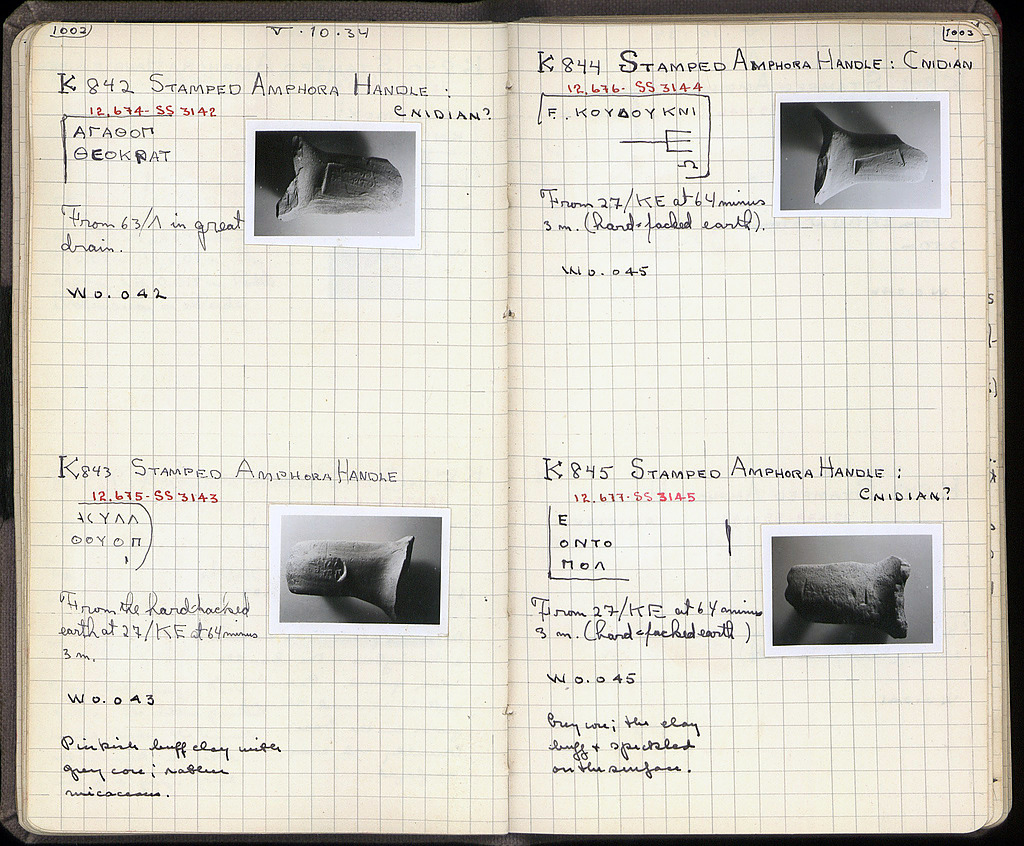 1002
V.10.34
K 842 STAMPED AMPHORA HANDLE :
12,674- SS 3142
CNIDIAN?
ΑΓΑΘΟΠ
ΘΕΟΚΡΑΤ
From 63/Λ in great
drain.
W 0.042
K 843 STAMPED AMPHORA HANDLE
12,675- SS 3143
ΚΥΛΛ
ΘΟΥΟΠ
From the hard packed
earth at 27/ΚΕ at 64 minus
3 m.
W 0.043
Pinkish buff clay with
grey core; rather
micaceous.
1003
K 844 STAMPED AMPHORA HANDLE : CNIDIAN
12,676- SS 3144
Ε . ΚΟΥΔΟΥ ΚΝΙ
Ω
From 27/ΚΕ at 64 minus
3 m. (hard-packed earth).
W 0.045
K 845 STAMPED AMPHORA HANDLE :
12,677- SS 3145
CNIDIAN?
Ε
ΟΝΤΟ
ΠΟΛ
From 27/ΚΕ at 64 minus
3 m. (hard-packed earth)
W 0.045
Grey core; the clay
buff & speckled
on the surface.